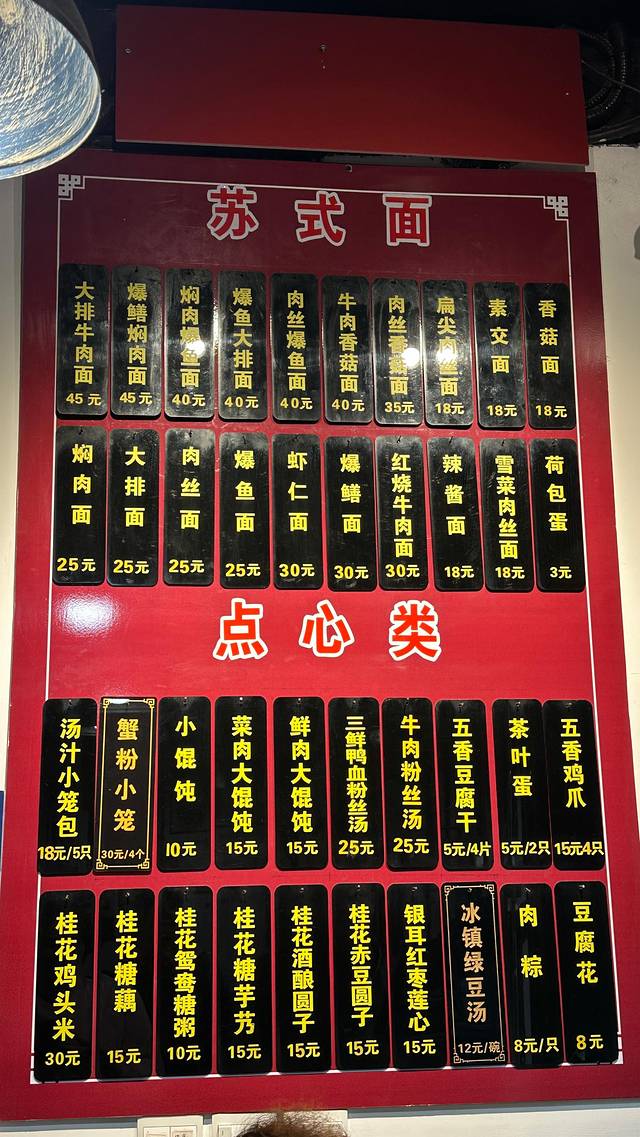 苏式面
大排牛肉面 45元
爆鳝焖肉面 45元
焖肉爆鱼面 40元
爆鱼大排面 40元
肉丝爆鱼面 40元
牛肉香菇面 40元
肉丝香菇面 35元
扁尖肉丝面 18元
素交面 18元
香菇面 18元
焖肉面 25元
大排面 25元
肉丝面 25元
爆鱼面 25元
虾仁面 30元
爆鳝面 30元
红烧牛肉面 30元
辣酱面 18元
雪菜肉丝面 18元
荷包蛋 3元
点心类
汤汁小笼包 18元/5只
蟹粉小笼 30元/4个
小馄饨 10元
菜肉大馄饨 15元
鲜肉大馄饨 15元
三鲜鸭血粉丝汤 25元
牛肉粉丝汤 25元
五香豆腐干 5元/4片
茶叶蛋 5元/2只
五香鸡爪 15元4只
桂花鸡头米 30元
桂花糖藕 15元
桂花鸳鸯糖粥 10元
桂花糖芋艿 15元
桂花酒酿圆子 15元
桂花赤豆圆子 15元
银耳红枣莲心 15元
冰镇绿豆汤 12元/碗
肉粽 8元/只
豆腐花 8元